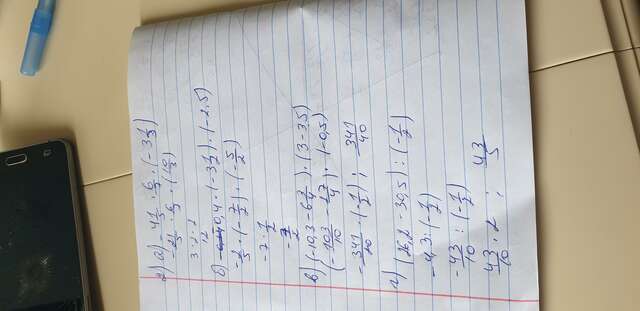 а) -4 1/5 · 6/7 · (-3 1/3)
-21/5 · 6/7 · (10/3)
3 · 2 · 2
12
б) 0,4 · (-3 1/2) · (-2,5)
-2/5 · (-7/2) · (-5/2)
-7 · 1/2
-7/2
в) (-10,3 - 6 3/4) · (3-3,5)
(-103/10 - 27/4) · (-0,5)
-341/20 · (-1/2) ; 341/40
г) (26,2 - 30,5) : (-1/2)
-4,3 : (-1/2)
-43/10 : (-1/2)
43/10 · 2 ; 43/5